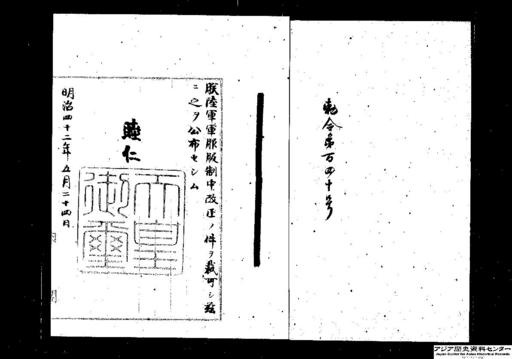 勅令第百四十号
朕陸軍軍服服制中改正ノ件ヲ裁可シ茲
ニ之ヲ公布セシム
睦仁
天皇御璽
明治四十二年五月二十四日
アジア歴史資料センター
Japan Center for Asian Historical Records